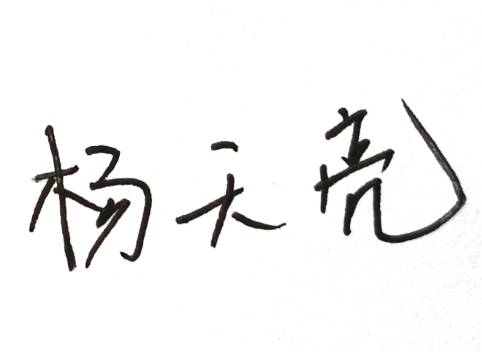 杨天亮